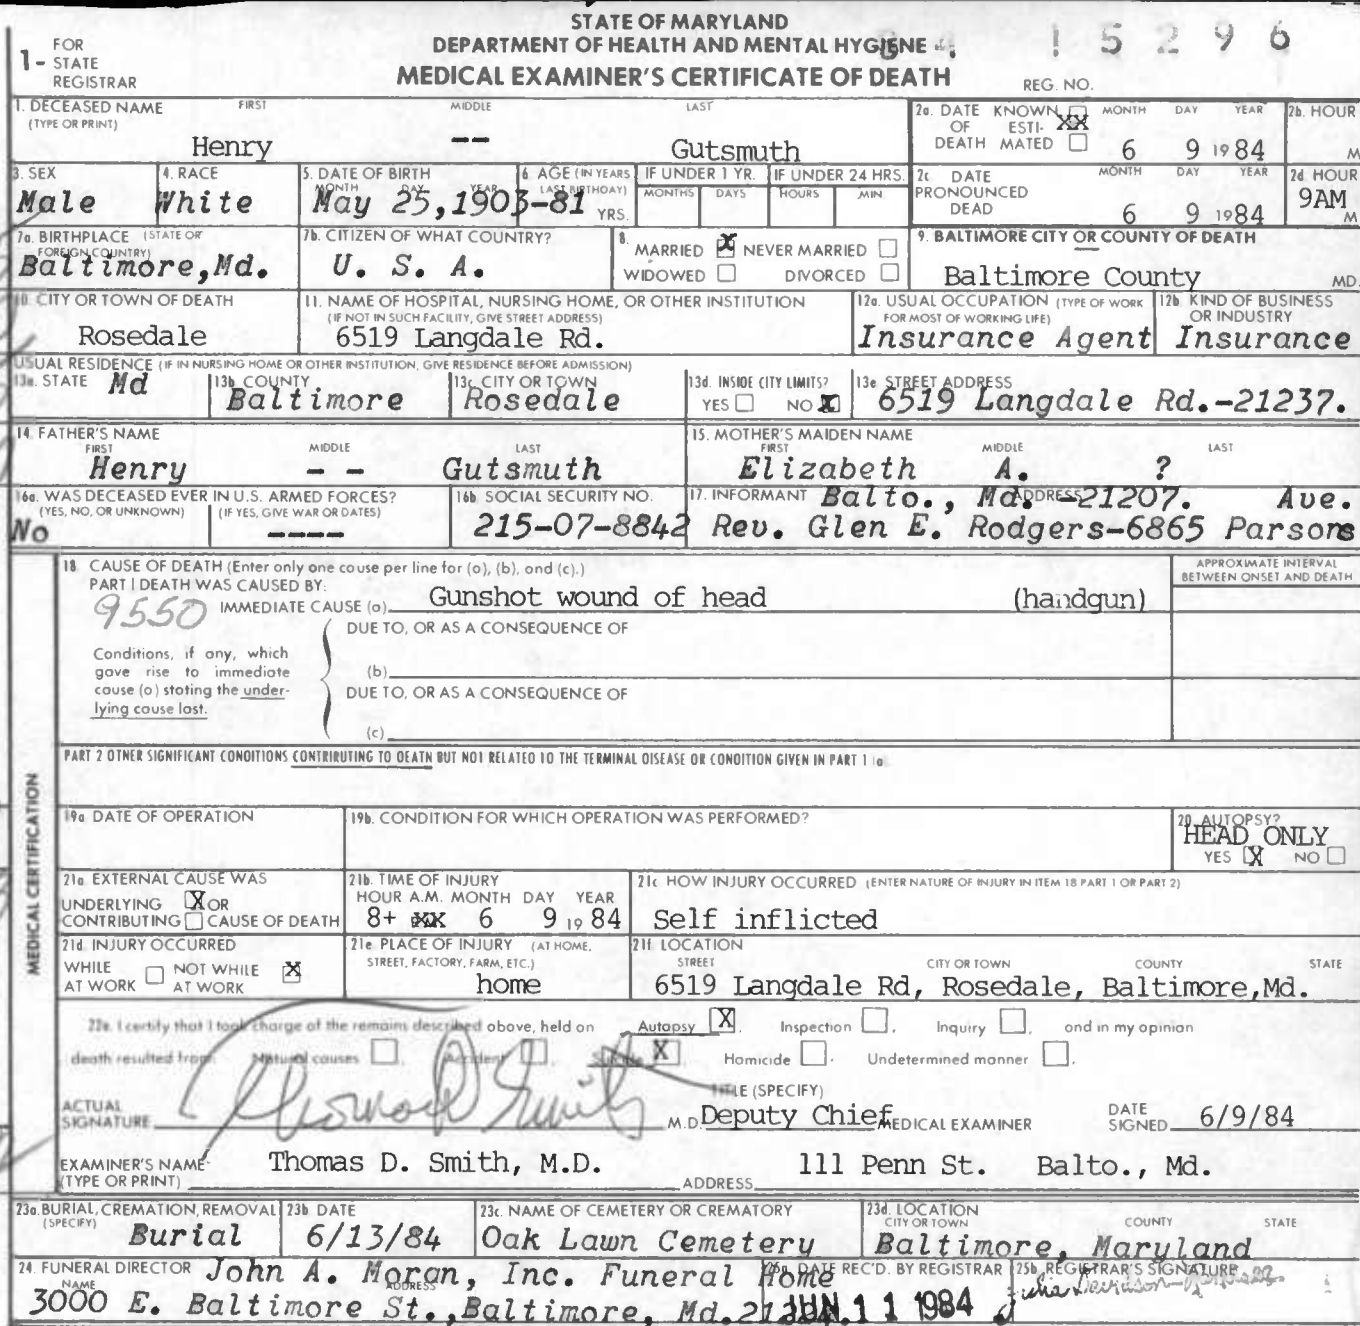 STATE OF MARYLAND
DEPARTMENT OF HEALTH AND MENTAL HYGIENE 84 15296
MEDICAL EXAMINER'S CERTIFICATE OF DEATH REG. NO.
1- FOR STATE REGISTRAR
1. DECEASED NAME (TYPE OR PRINT) FIRST MIDDLE LAST
Henry -- Gutsmuth
2a. DATE OF DEATH KNOWN ESTIMATED XX MONTH DAY YEAR 6 9 1984 2b. HOUR M
3. SEX Male 4. RACE White 5. DATE OF BIRTH MONTH DAY YEAR May 25,1903 6 AGE (IN YEARS LAST BIRTHDAY) -81 YRS. IF UNDER 1 YR. MONTHS DAYS IF UNDER 24 HRS. HOURS MIN
2c. DATE PRONOUNCED DEAD MONTH DAY YEAR 6 9 1984 2d HOUR 9AM M
7a. BIRTHPLACE (STATE OR FOREIGN COUNTRY) Baltimore,Md. 7b. CITIZEN OF WHAT COUNTRY? U. S. A. 8. MARRIED X NEVER MARRIED WIDOWED DIVORCED
9. BALTIMORE CITY OR COUNTY OF DEATH Baltimore County MD.
10. CITY OR TOWN OF DEATH Rosedale 11. NAME OF HOSPITAL, NURSING HOME, OR OTHER INSTITUTION (IF NOT IN SUCH FACILITY, GIVE STREET ADDRESS) 6519 Langdale Rd.
12a. USUAL OCCUPATION (TYPE OF WORK FOR MOST OF WORKING LIFE) Insurance Agent 12b KIND OF BUSINESS OR INDUSTRY Insurance
USUAL RESIDENCE (IF IN NURSING HOME OR OTHER INSTITUTION, GIVE RESIDENCE BEFORE ADMISSION)
13a. STATE Md 13b. COUNTY Baltimore 13c. CITY OR TOWN Rosedale 13d. INSIDE CITY LIMITS? YES NO X 13e STREET ADDRESS 6519 Langdale Rd.-21237.
14. FATHER'S NAME FIRST MIDDLE LAST Henry - - Gutsmuth
15. MOTHER'S MAIDEN NAME FIRST MIDDLE LAST Elizabeth A. ?
16a. WAS DECEASED EVER IN U.S. ARMED FORCES? (YES, NO, OR UNKNOWN) No (IF YES, GIVE WAR OR DATES) ---- 16b. SOCIAL SECURITY NO. 215-07-8842
17. INFORMANT ADDRESS Balto., Md.-21207. Ave.
Rev. Glen E. Rodgers-6865 Parsons
MEDICAL CERTIFICATION
18. CAUSE OF DEATH (Enter only one cause per line for (a), (b), and (c).) APPROXIMATE INTERVAL BETWEEN ONSET AND DEATH
PART I DEATH WAS CAUSED BY:
9550 IMMEDIATE CAUSE (a) Gunshot wound of head (handgun)
DUE TO, OR AS A CONSEQUENCE OF
Conditions, if any, which gave rise to immediate cause (a) stating the underlying cause last.
(b)
DUE TO, OR AS A CONSEQUENCE OF
(c)
PART 2 OTHER SIGNIFICANT CONDITIONS CONTRIBUTING TO DEATH BUT NOT RELATED TO THE TERMINAL DISEASE OR CONDITION GIVEN IN PART 1 a
19a DATE OF OPERATION 19b. CONDITION FOR WHICH OPERATION WAS PERFORMED? 20. AUTOPSY? HEAD ONLY YES X NO
21a EXTERNAL CAUSE WAS UNDERLYING X OR CONTRIBUTING CAUSE OF DEATH
21b. TIME OF INJURY HOUR A.M. MONTH DAY YEAR 8+ XX 6 9 1984
21c HOW INJURY OCCURRED (ENTER NATURE OF INJURY IN ITEM 18 PART 1 OR PART 2) Self inflicted
21d. INJURY OCCURRED WHILE AT WORK NOT WHILE AT WORK X
21e PLACE OF INJURY (AT HOME, STREET, FACTORY, FARM, ETC.) home
21f LOCATION STREET CITY OR TOWN COUNTY STATE 6519 Langdale Rd, Rosedale, Baltimore,Md.
22a. I certify that I took charge of the remains described above, held on Autopsy X, Inspection, Inquiry, and in my opinion
death resulted from Natural causes, Accident, Suicide X Homicide. Undetermined manner.
ACTUAL SIGNATURE Thomas D Smith M.D. TITLE (SPECIFY) Deputy Chief MEDICAL EXAMINER DATE SIGNED 6/9/84
EXAMINER'S NAME (TYPE OR PRINT) Thomas D. Smith, M.D. ADDRESS 111 Penn St. Balto., Md.
23a. BURIAL, CREMATION, REMOVAL (SPECIFY) Burial 23b DATE 6/13/84 23c. NAME OF CEMETERY OR CREMATORY Oak Lawn Cemetery 23d. LOCATION CITY OR TOWN COUNTY STATE Baltimore, Maryland
24. FUNERAL DIRECTOR NAME ADDRESS John A. Moran, Inc. Funeral Home
3000 E. Baltimore St.,Baltimore, Md.
DATE REC'D. BY REGISTRAR JUN 11 1984 25b. REGISTRAR'S SIGNATURE